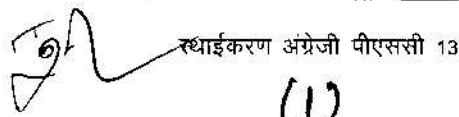 स्थाईकरण अंग्रेजी पीएससी 13
(1)